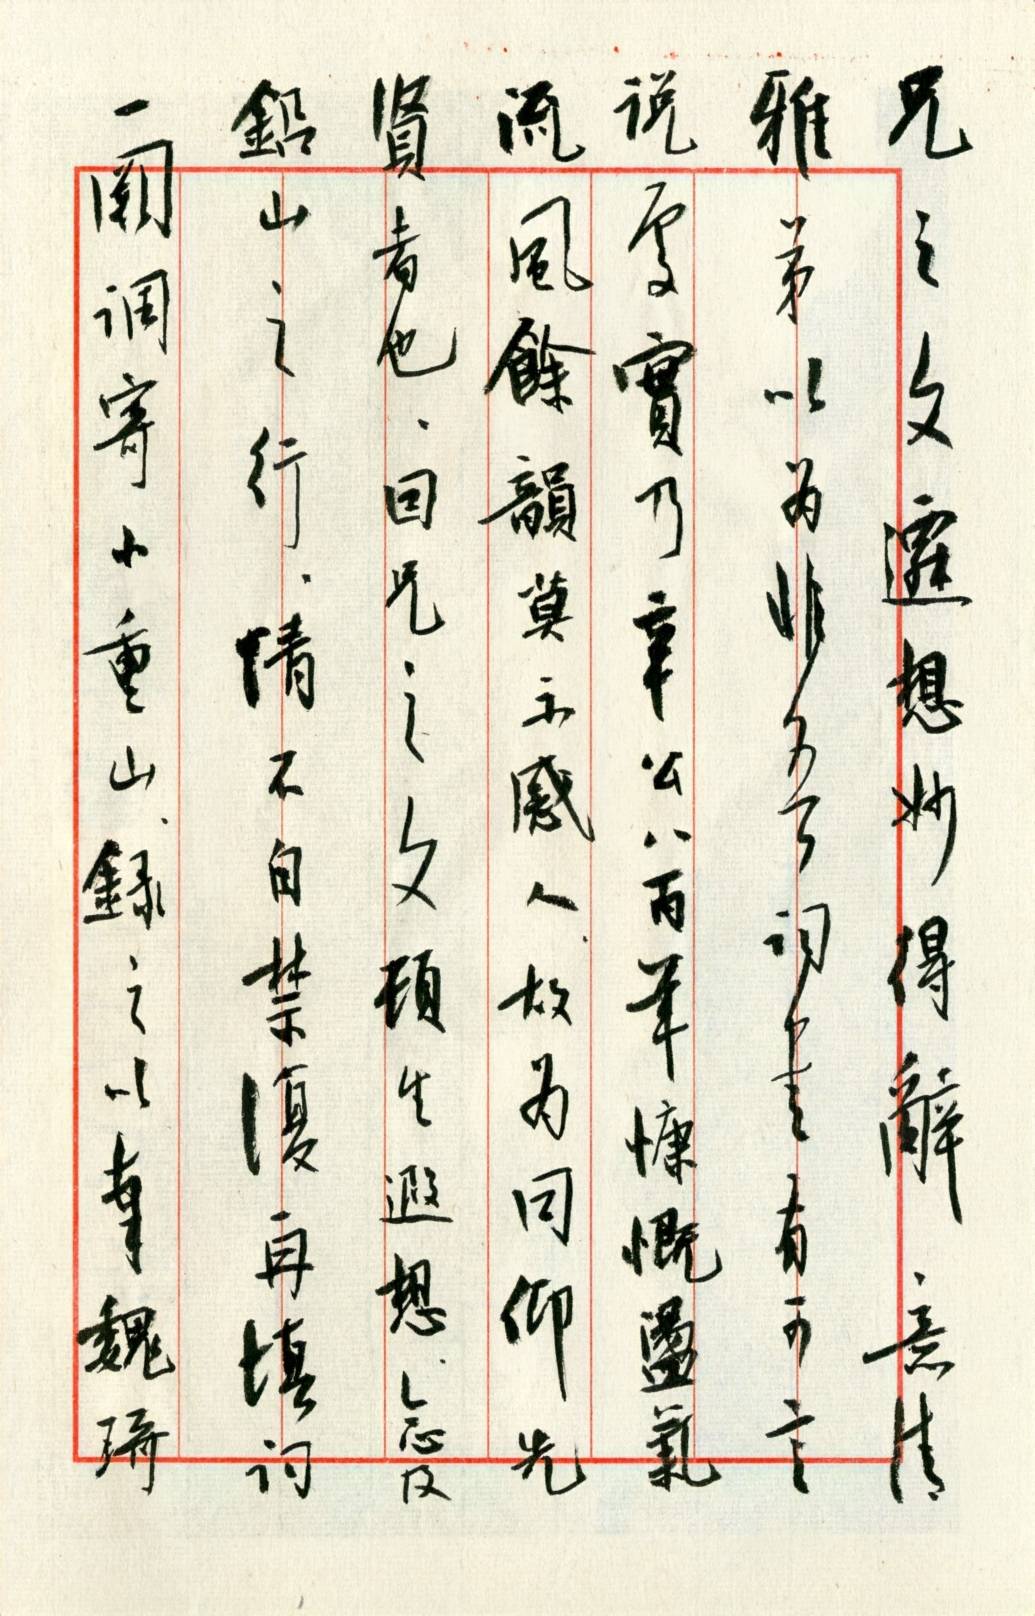 兄之文遷想妙得辭意清
雅弟以为非词有可言
说處實乃辛公八百年慷慨盪氣
流風餘韻莫不感人故为同仰先
賢者也因兄之文頓生遐想念及
鉛山之行情不自禁復再填词
一阕调寄小重山錄之以奉魏琦